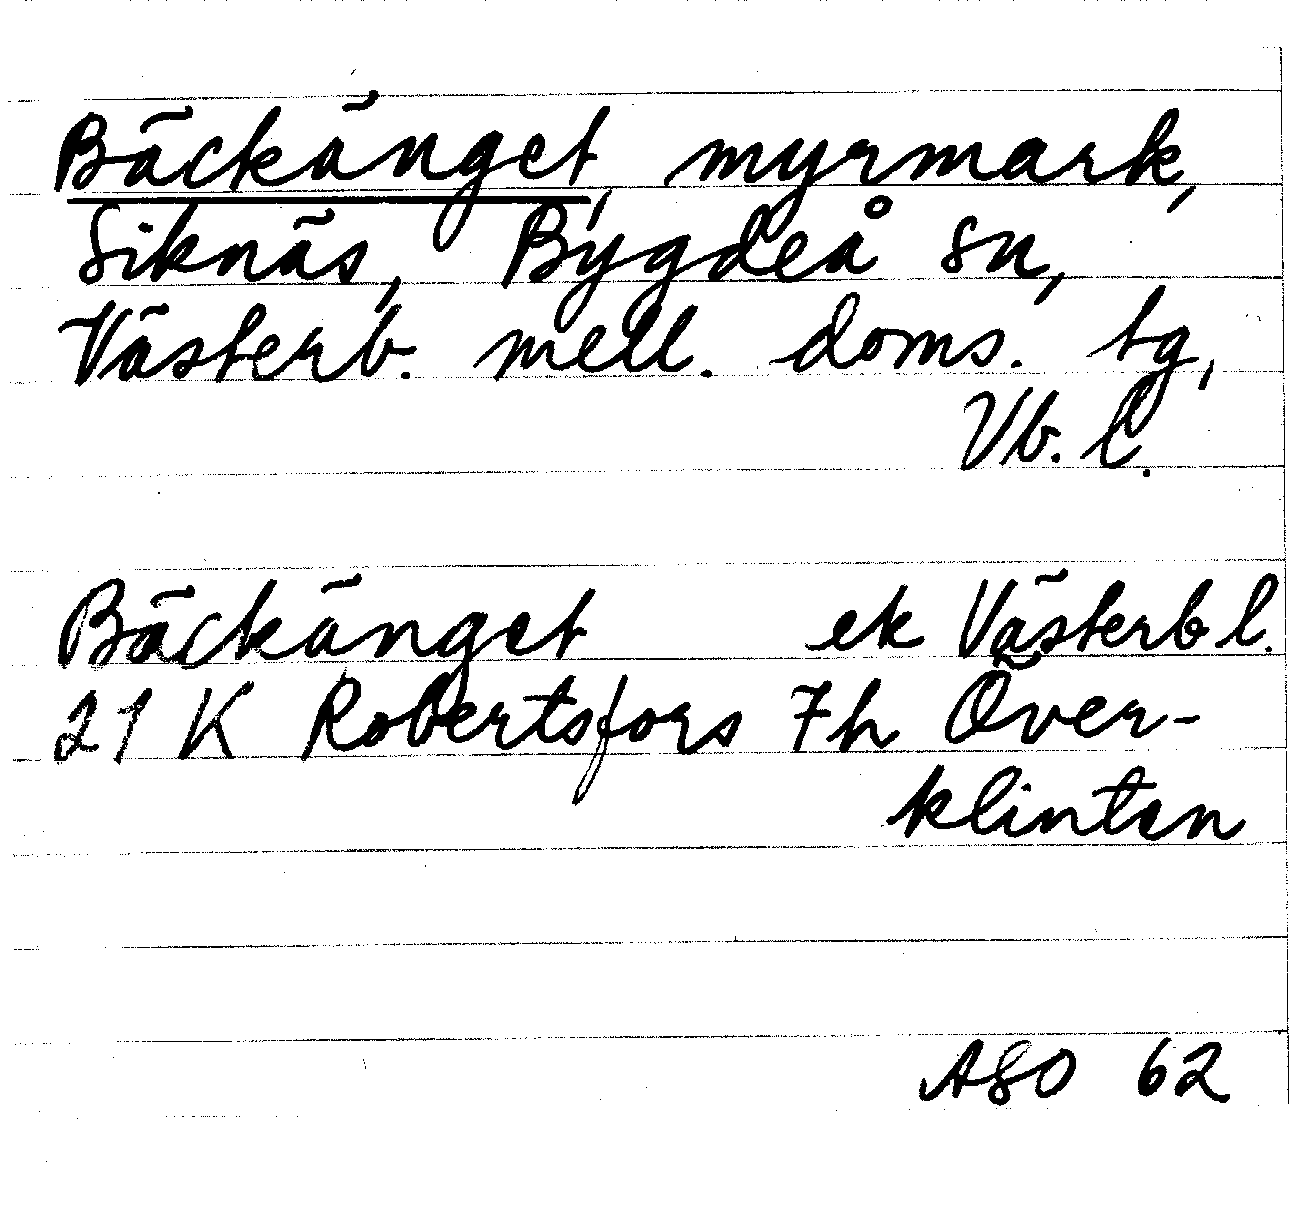 Bäckänget, myrmark,
Siknäs, Bygdeå sn,
Västerb. mell. doms. tg,
Vb. l.
Bäckänget ek Västerb l.
21 K Robertsfors 7h Över-
klinten
ASO 62